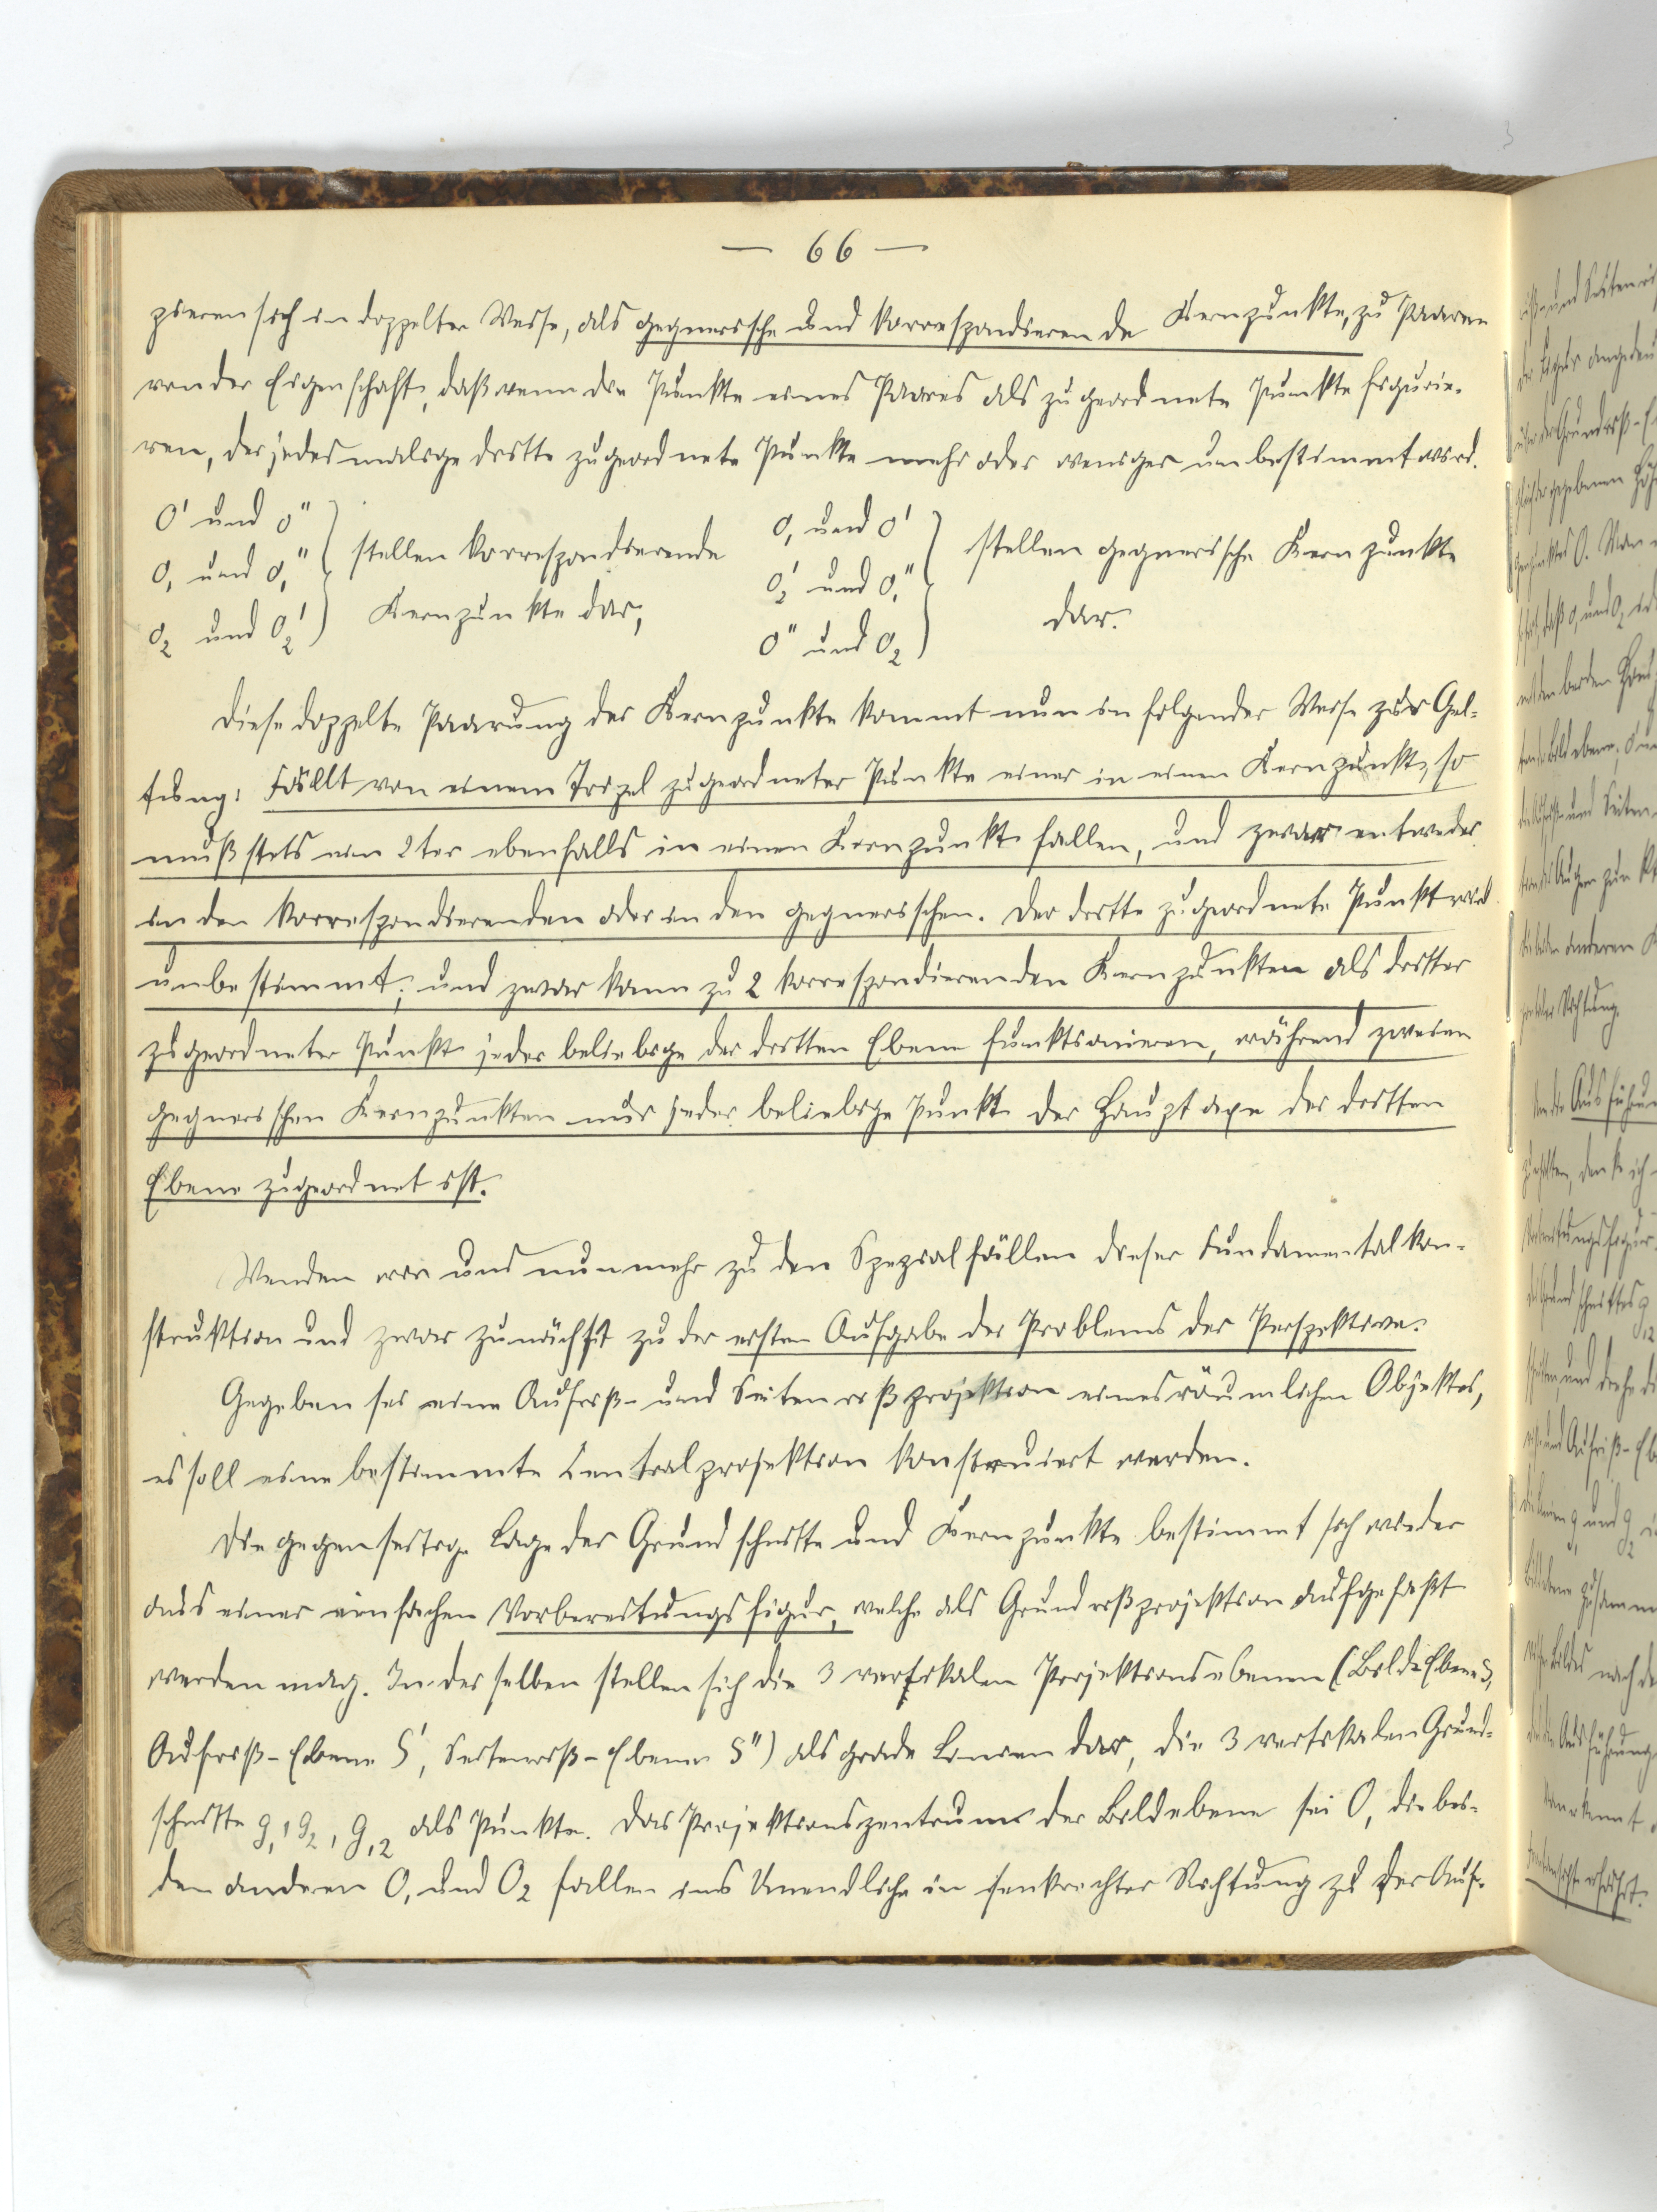 — 66 —
zieren sich in doppelter Weise, als gegnerische und korrespondierende Kernpunkte, zu Paaren
von der Eigenschaft, daß wenn die Punkte eines Paares als zugeordnete Punkte figurie-
ren, der jedesmalige dritte zugeordnete Punkte mehr oder weniger unbestimmt wird.
O' und O'' } stellen korrespondierende O₁ und O' } stellen gegnerische Kernpunkte
O₁ und O₁'' } Kernpunkte dar; O₂' und O₁'' } dar.
O₂ und O₂' } O'' und O₂ }
Diese doppelte Paarung der Kernpunkte kommt nun in folgender Weise zur Gel-
tung: Fällt von einem Tripel zugeordneter Punkte einer in einen Kernpunkt, so
muß stets ein 2ter ebenfalls in einen Kernpunkt fallen, und zwar entweder
in den korrespondierenden oder in den gegnerischen. Der dritte zugeordnete Punkt wird
unbestimmt; und zwar kann zu 2 korrespondierenden Kernpunkten als dritter
zugeordneter Punkt jeder beliebige der dritten Ebene funktionieren, während zweien
gegnerischen Kernpunkten nur jeder beliebige Punkt der Hauptaxe der dritten
Ebene zugeordnet ist.
Wenden wir uns nunmehr zu den Spezialfällen dieser Fundamentalkon-
struktion und zwar zunächst zu der ersten Aufgabe des Problems der Perspektive.
Gegeben sei eine Aufriß- und Seitenrißprojektion eines räumlichen Objektes,
es soll eine bestimmte Centralprojektion konstruiert werden.
Die gegenseitige Lage der Grundschnitte und Kernpunkte bestimmt sich wieder
aus einer einfachen Vorbereitungsfigur, welche als Grundrißprojektion aufgefaßt
werden mag. In derselben stellen sich die 3 vertikalen Projektionsebenen (Bild-Ebene S,
Aufriß-Ebene S', Seitenriß-Ebene S'') als grade Linien dar, die 3 vertikalen Grund-
schnitte g₁, g₂, g₁₂ als Punkte. Das Projektionszentrum der Bildebene sei O, die bei-
den anderen O₁ und O₂ fallen ins Unendliche in senkrechter Richtung zu der Auf-